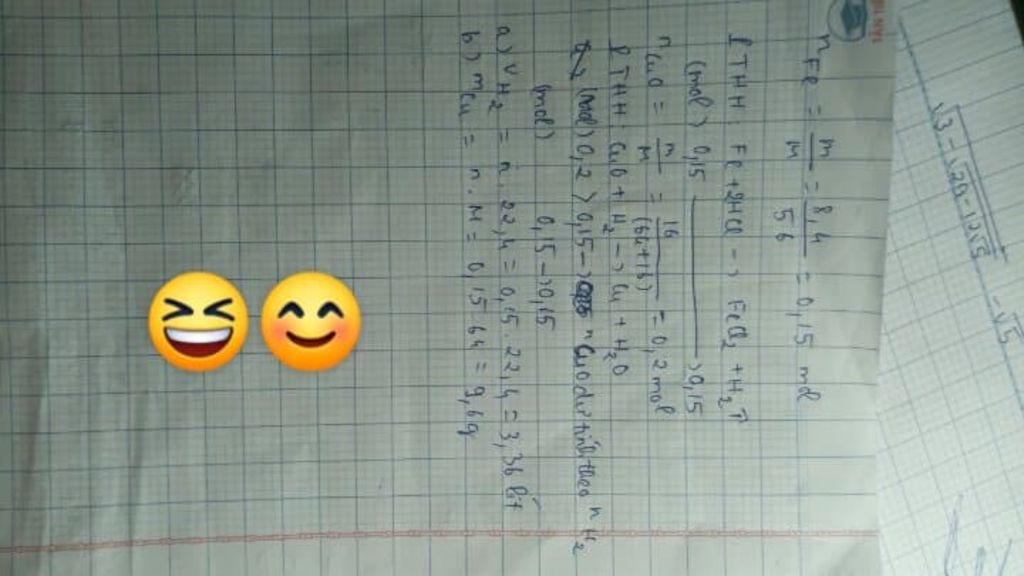 nFe = m/M = 8,4/56 = 0,15 mol
PTHH: Fe + 2HCl -> FeCl2 + H2↑
(mol) 0,15 -> 0,15
nCuO = m/M = 16/(64+16) = 0,2 mol
PTHH: CuO + H2 -> Cu + H2O
(mol) 0,2 > 0,15 -> nCuO dư tính theo nH2
(mol) 0,15 -> 0,15
a) VH2 = n. 22,4 = 0,15. 22,4 = 3,36 lít
b) mCu = n. M = 0,15. 64 = 9,6g
√3-√29-12√5 - √5